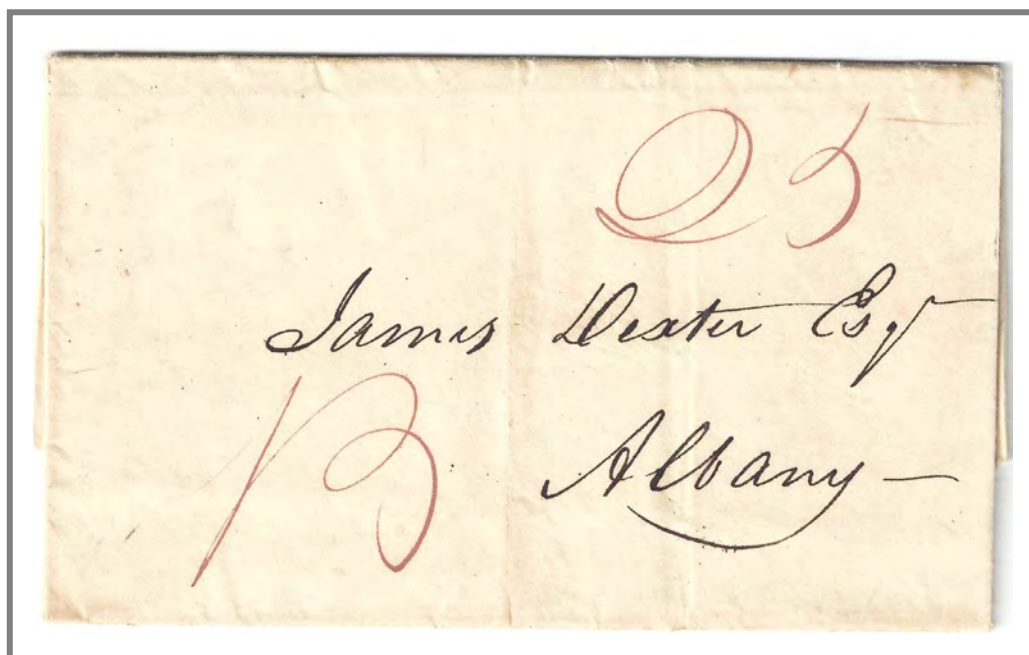 25
James Dexter Esqr
B
Albany —